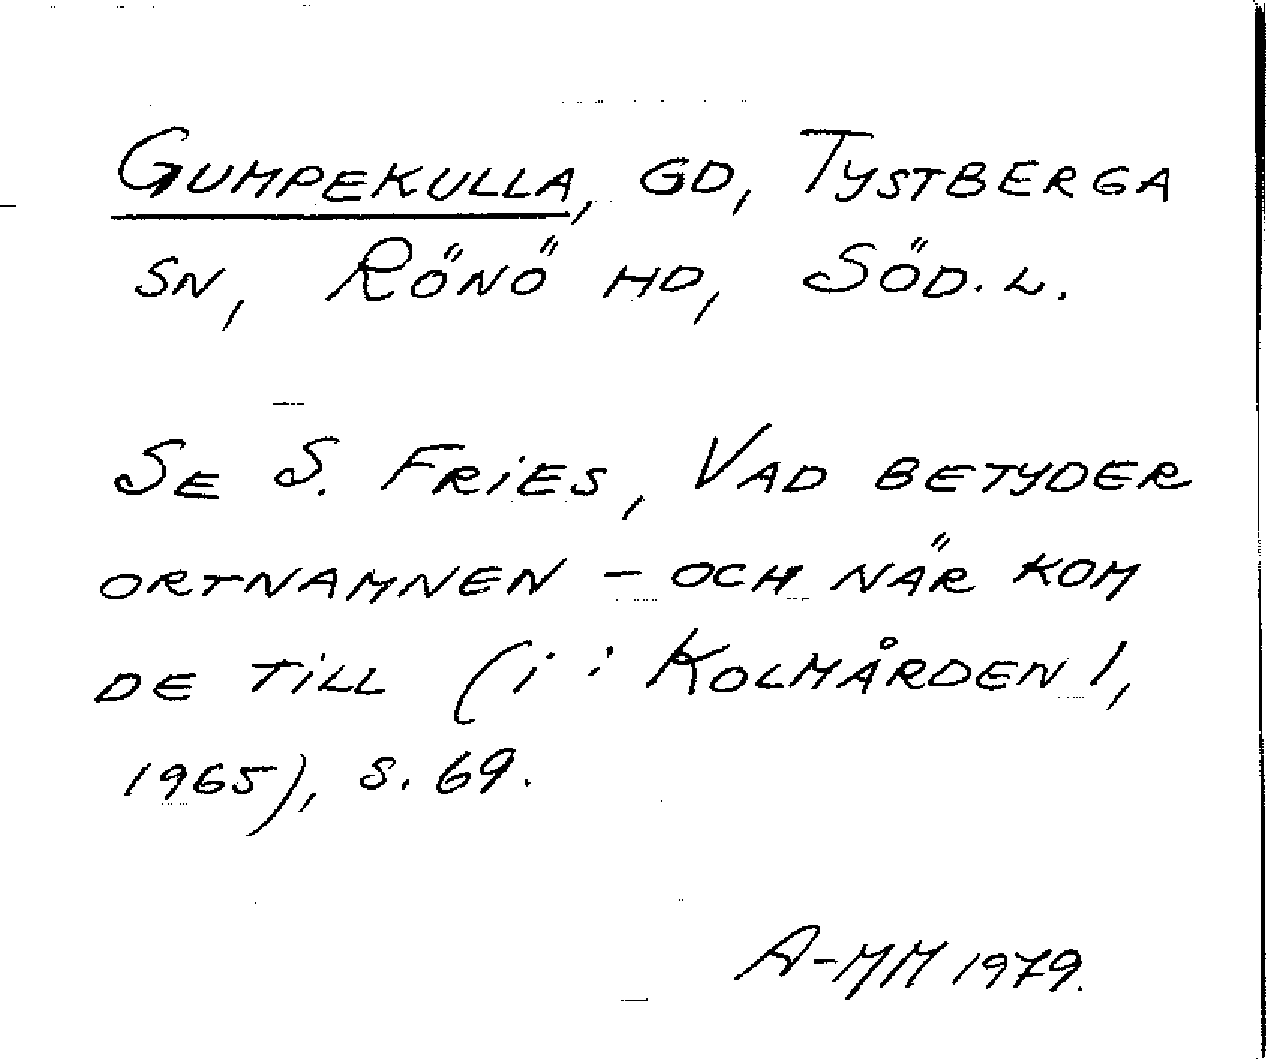 GUMPEKULLA, GD, TYSTBERGA
SN, RÖNÖ HD, SÖD. L.
SE S. FRIES, VAD BETYDER
ORTNAMNEN – OCH NÄR KOM
DE TILL (i: KOLMÅRDEN 1,
1965), S. 69.
A-MM 1979.